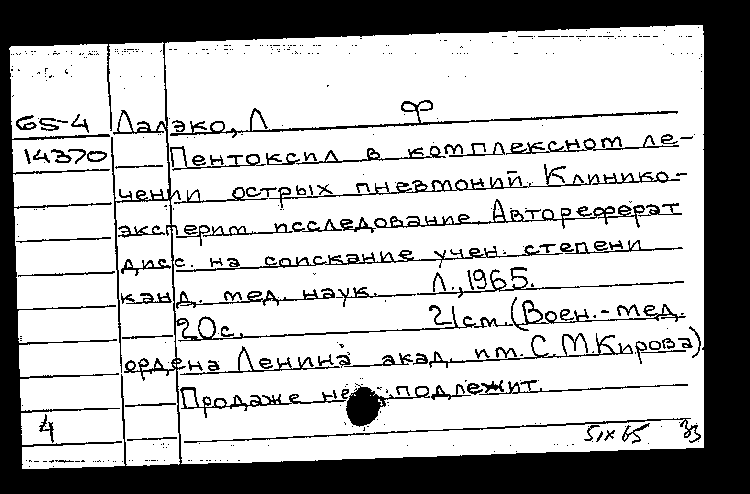 65-4 Лалэко, Л Ф
14370 Пентоксил в комплексном ле-
чении острых пневмоний. Клинико-
эксперим. исследование. Автореферат
дисс. на соискание учен. степени
канд. мед. наук. Л., 1965.
20с. 21см. (Воен.-мед.
ордена Ленина акад. им. С.М.Кирова).
Продаже не подлежит.
4
5 IX 65